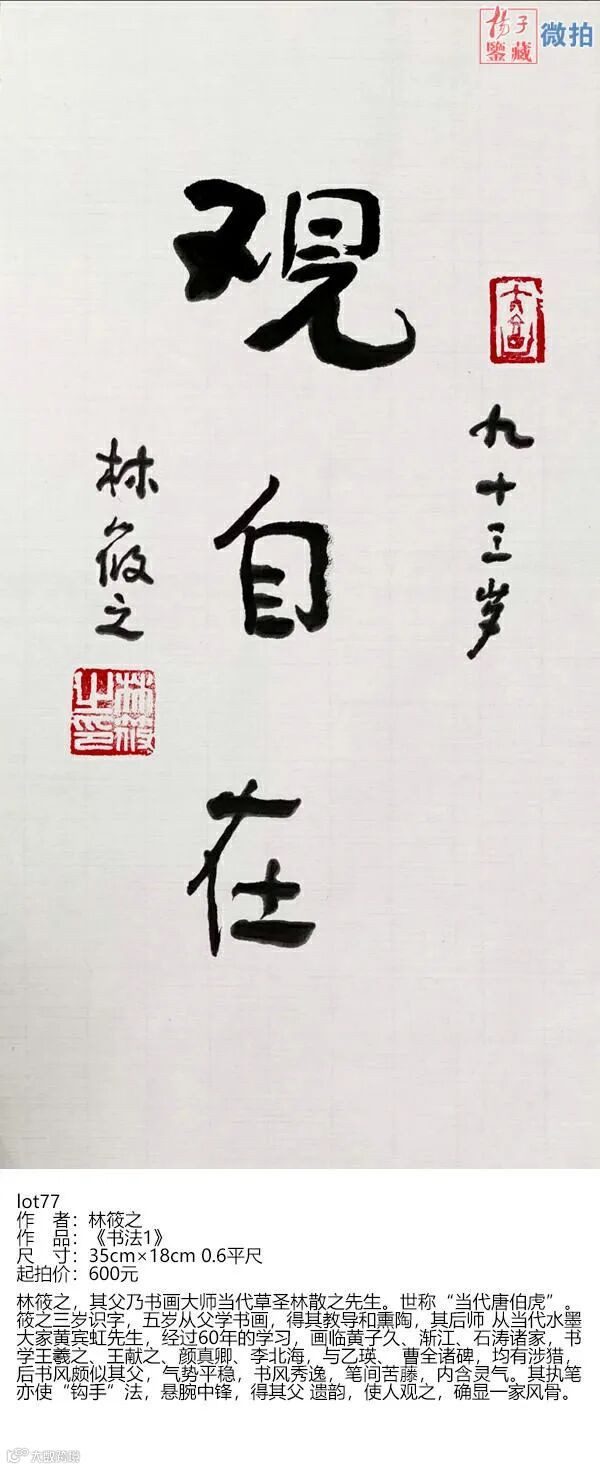 揚子
鑒藏
微拍
九十三岁
观自在
林筱之
林筱之印
lot77
作 者：林筱之
作 品：《书法1》
尺 寸：35cm×18cm 0.6平尺
起拍价：600元
林筱之，其父乃书画大师当代草圣林散之先生。世称“当代唐伯虎”。
筱之三岁识字，五岁从父学书画，得其教导和熏陶，其后师 从当代水墨
大家黄宾虹先生，经过60年的学习，画临黄子久、渐江、石涛诸家，书
学王羲之、王献之、颜真卿、李北海，与乙瑛、 曹全诸碑，均有涉猎，
后书风颇似其父，气势平稳，书风秀逸，笔间苦藤，内含灵气。其执笔
亦使“钩手”法，悬腕中锋，得其父 遗韵，使人观之，确显一家风骨。
大数跨境